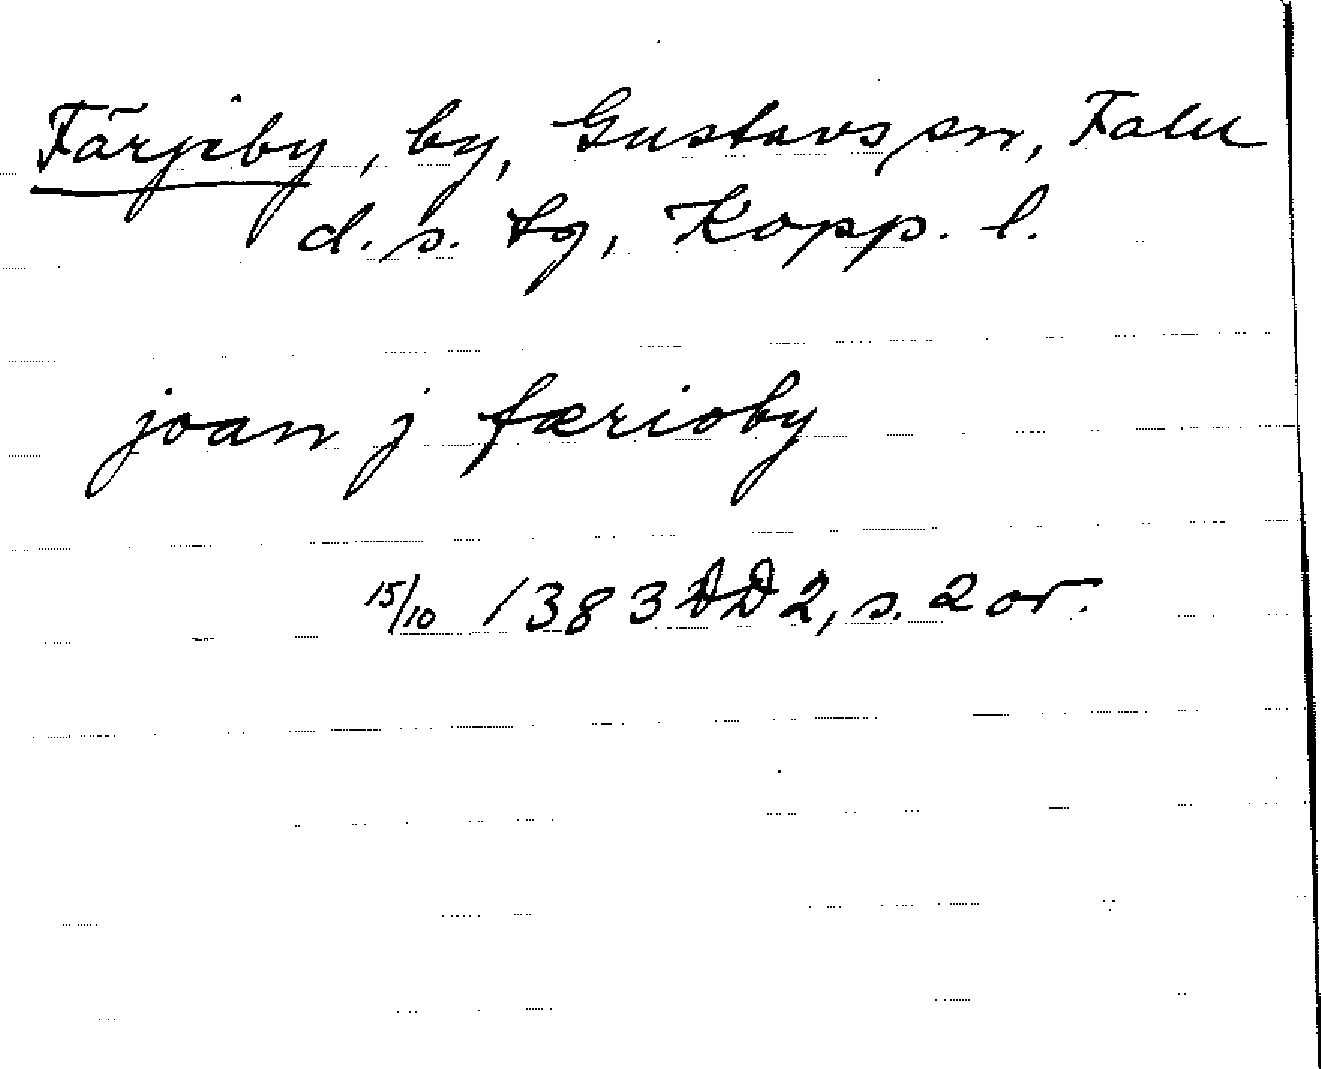 Färjeby, by, Gustavs sn, Falu
d. s. tg, Kopp. l.
joan j færioby
15/10 1383 DD2, s. 2 or.